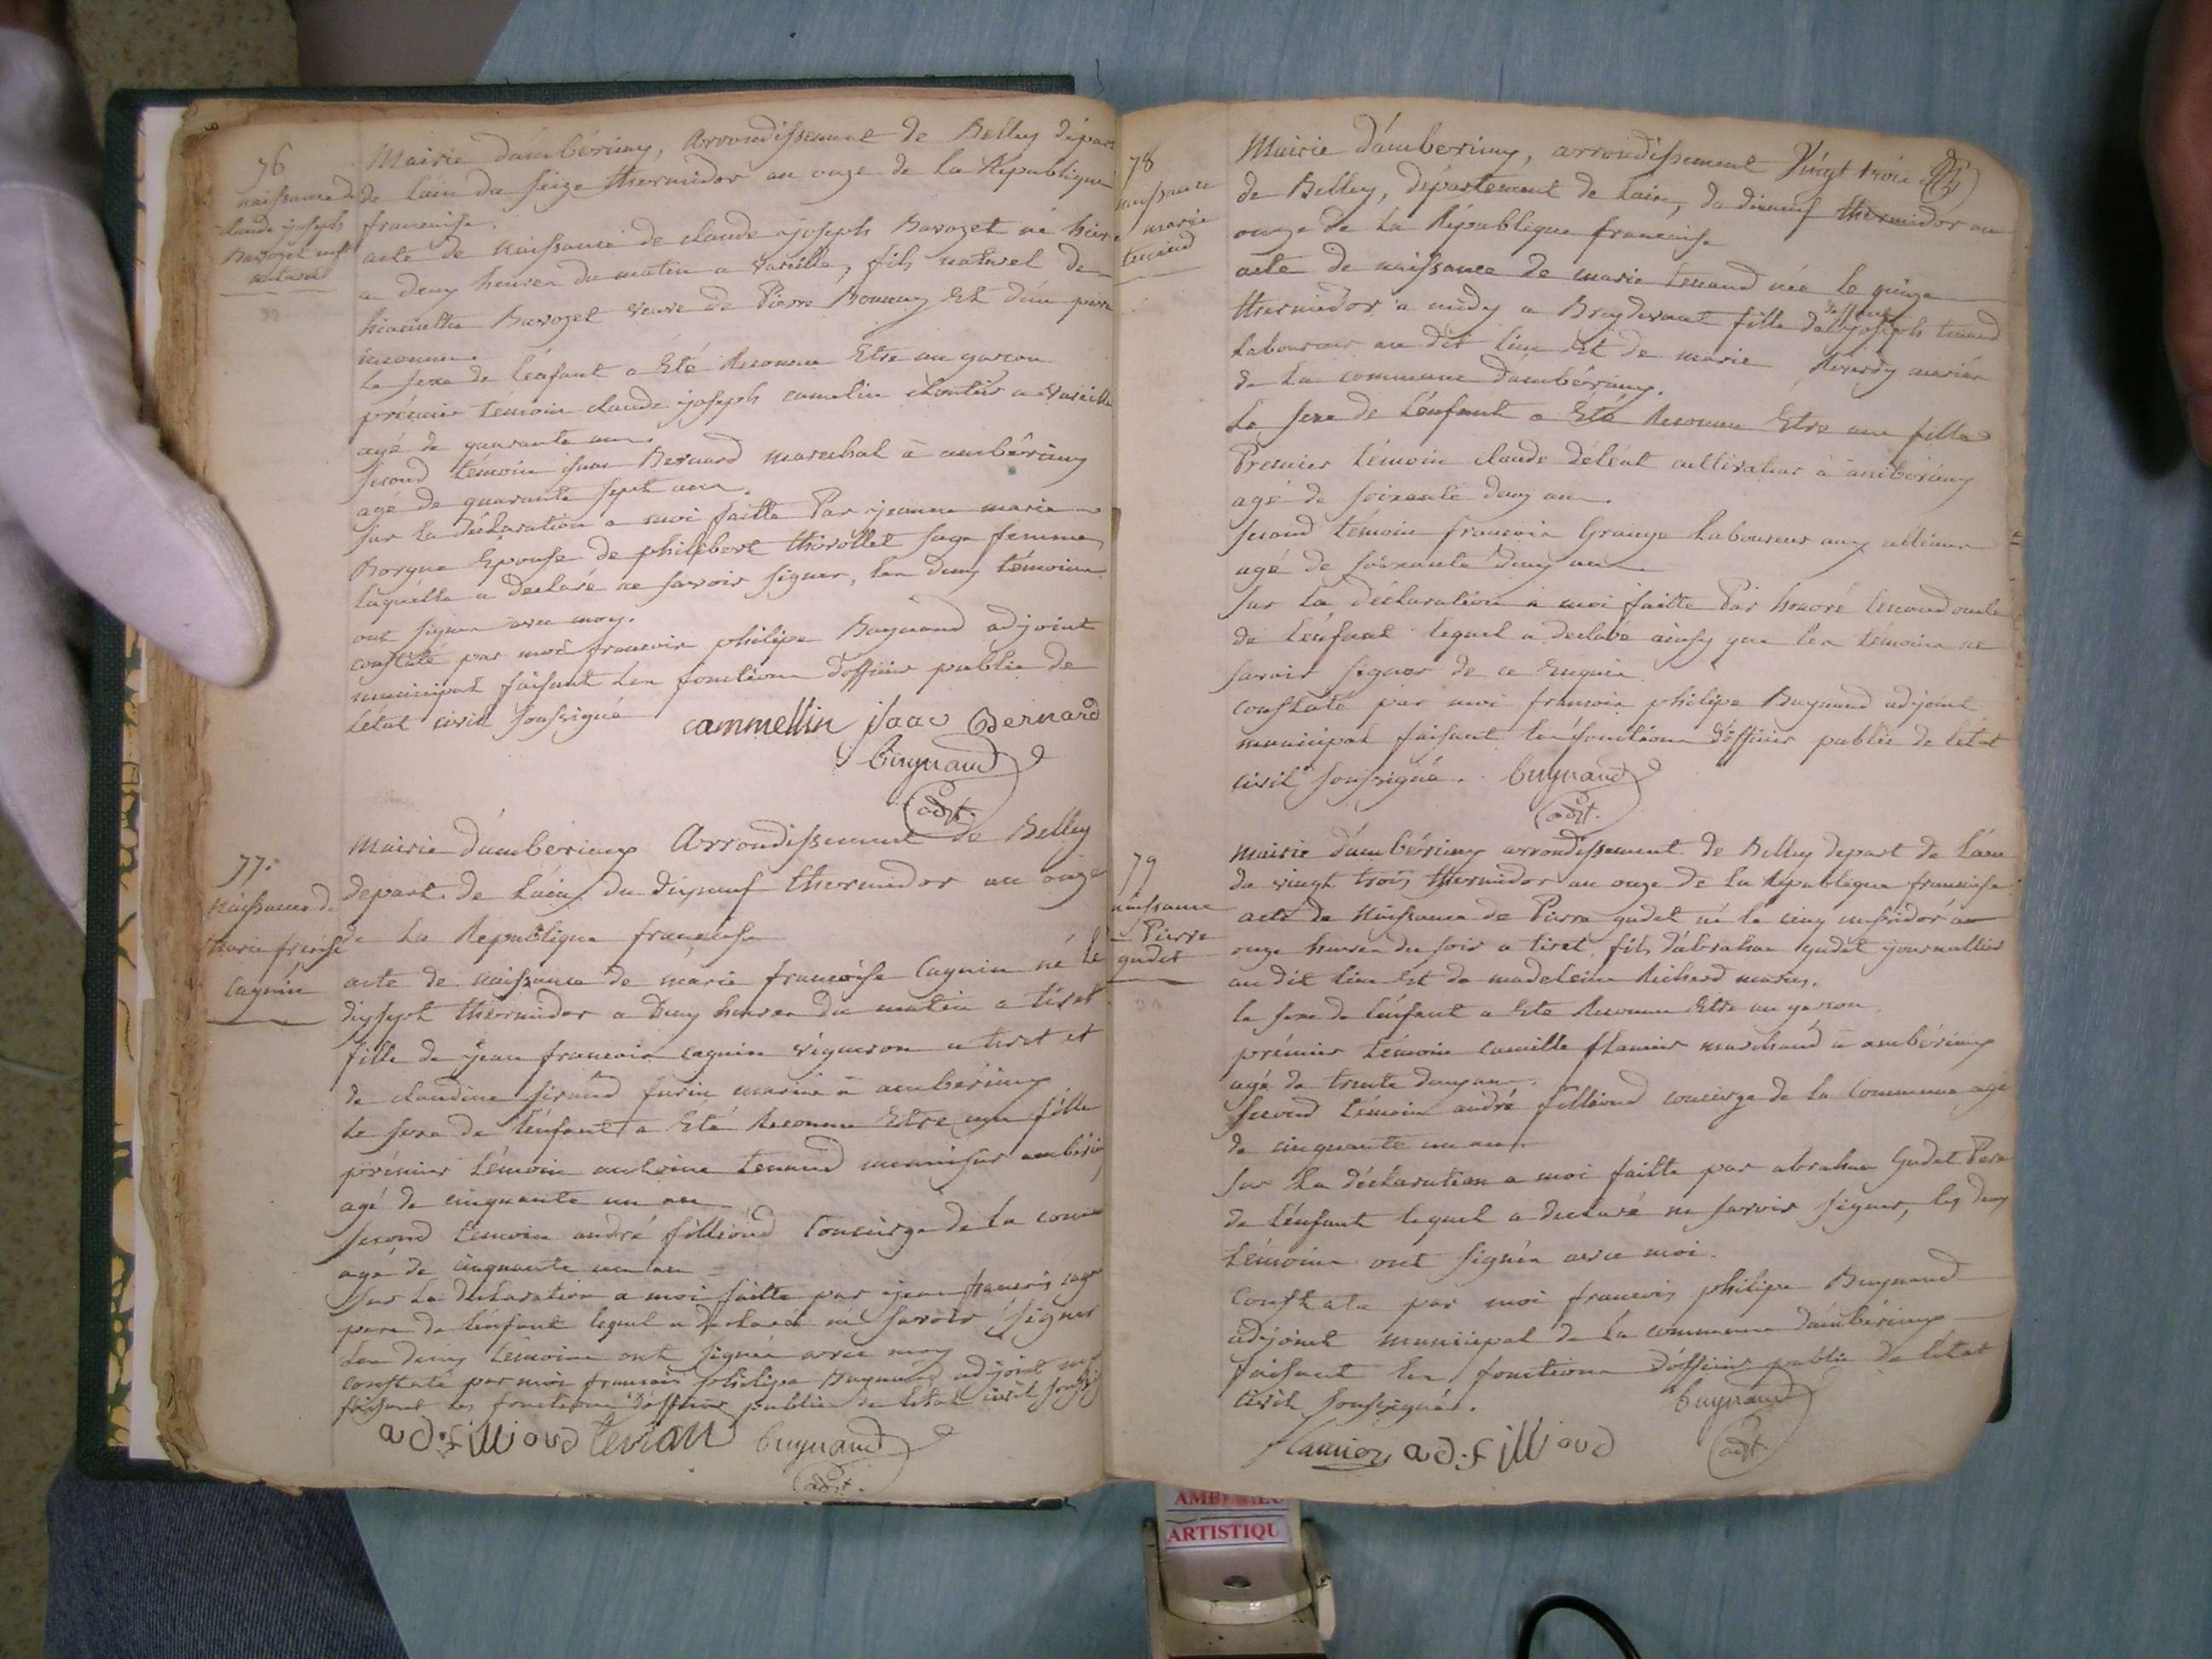 76
naissance de
claude joseph
Barozet enft
naturel
Mairie d'ambérieux, arrondissement de Belley dépar
de Lain du seize thermidor an onze de La République
francaise.
acte de naissance de claude joseph Barozet né hier
a deux heures du matin a Vareille, fils naturel de
hiacinthe Barozet veuve de Pierre Bonnery Et d'un père
inconnu
Le sexe de l'enfant a Eté Reconnu Etre un garcon
prémier témoin claude joseph camelin a Vareille
agé de quarante ans.
second témoin isaac Bernard marechal à ambérieux
agé de quarante sept ans.
sur la déclaration a moi faitte Par jeanne marie
Borgne Epouse de philibert thivollet sage femme
laquelle a declaré ne savoir signer, les deux témoins
ont signer avec moy.
constaté par moi francois philipe Bugnand adjoint
municipal faisant les fonctions d'officier public de
L'état civil soussigné
cammellin isaac Bernard
Bugnand
adjt.
77.
Naissance de
marie frcoise
Cagnin
Mairie d'ambérieux Arrondissement de Belley
depart. de Lain, du dixneuf thermidor an onze
de La Republique francaise
acte de naissance de marie francoise Cagnin né le
dixsept thermidor a Deux heures du matin a tiret
fille de jean francois cagnin vigneron a tiret et
de claudine sirand furin mariés a ambérieux
Le sexe de l'enfant a Eté Reconnu Etre une fille
prémier témoin antoine tenand menuisier ambérieu
agé de cinquante un an
second temoin andré filliond Concierge de la come
agé de cinquante un an
sur la declaration a moi faitte par jean francois cagn
pere de l'enfant lequel a declaré né savoir signer
Les deux temoins ont signés avec moy
constaté par moi francois philipe Bugnand adjoint mp
faisant les fonctions d'officier public de l'etat civil soussi
ad.fillioud tenan Bugnand
adjt.
Vingt trois
78
naissance
marie
tenand
Mairie d'amberieux, arrondissement
de Belley, département de Lain, du dixneuf thermidor an
onze de La République francaise
acte de naissance de marie tenand née le quinze
thermidor a midy a Breydevent fille de deffunt joseph tenand
Laboureur au dit lieu Et de marie Révérdy mariés
de La commune d'ambérieux.
Le sexe de L'enfant a Eté Reconnu Etre une fille
Prémier témoin claude délént cultivateur à ambérieux
agé de soixante deux ans.
second témoin francois Grange Laboureur aux allimes
agé de soixante deux ans
sur La déclaration a moi faitte Par honoré tenand oncle
de L'enfant lequel a declaré ainsy que les témoins ne
savoir signer de ce Enquis
constaté par moi francois philipe Bugnand adjoint
municipal faisant les fonctions d'officier public de l'etat
civil soussigné. Bugnand
adjt.
79
naissance
Pierre
gudet
Mairie d'ambérieux arrondissement de Belley depart de Lain
du vingt trois thermidor an onze de la République francaise
acte de Naissance de Pierre gudet né le cinq messidor a
onze heures du soir a tiret, fils d'abraham gudet journallier
au dit lieu Et de madeleine Richerd mariés.
le sexe de l'enfant a Ete Reconnu Etre un garcon.
prémier témoin camille flamier marchand à ambérieux
agé de trente deux ans.
second témoin andré filliond concierge de la Commune agé
de cinquante un ans.
sur La déclaration a moi faitte par abraham Gudet Pere
de l'enfant lequel a declaré ne savoir signer, les deux
témoins ont signés avec moi.
Constaté par moi francois philipe Bugnand
adjoint municipal de la commune d'ambérieux
faisant les fonctions d'officier public de l'état
Civil soussigné.
Bugnand
adjt.
flamier ad.fillioud
AMBERIEU
ARTISTIQU